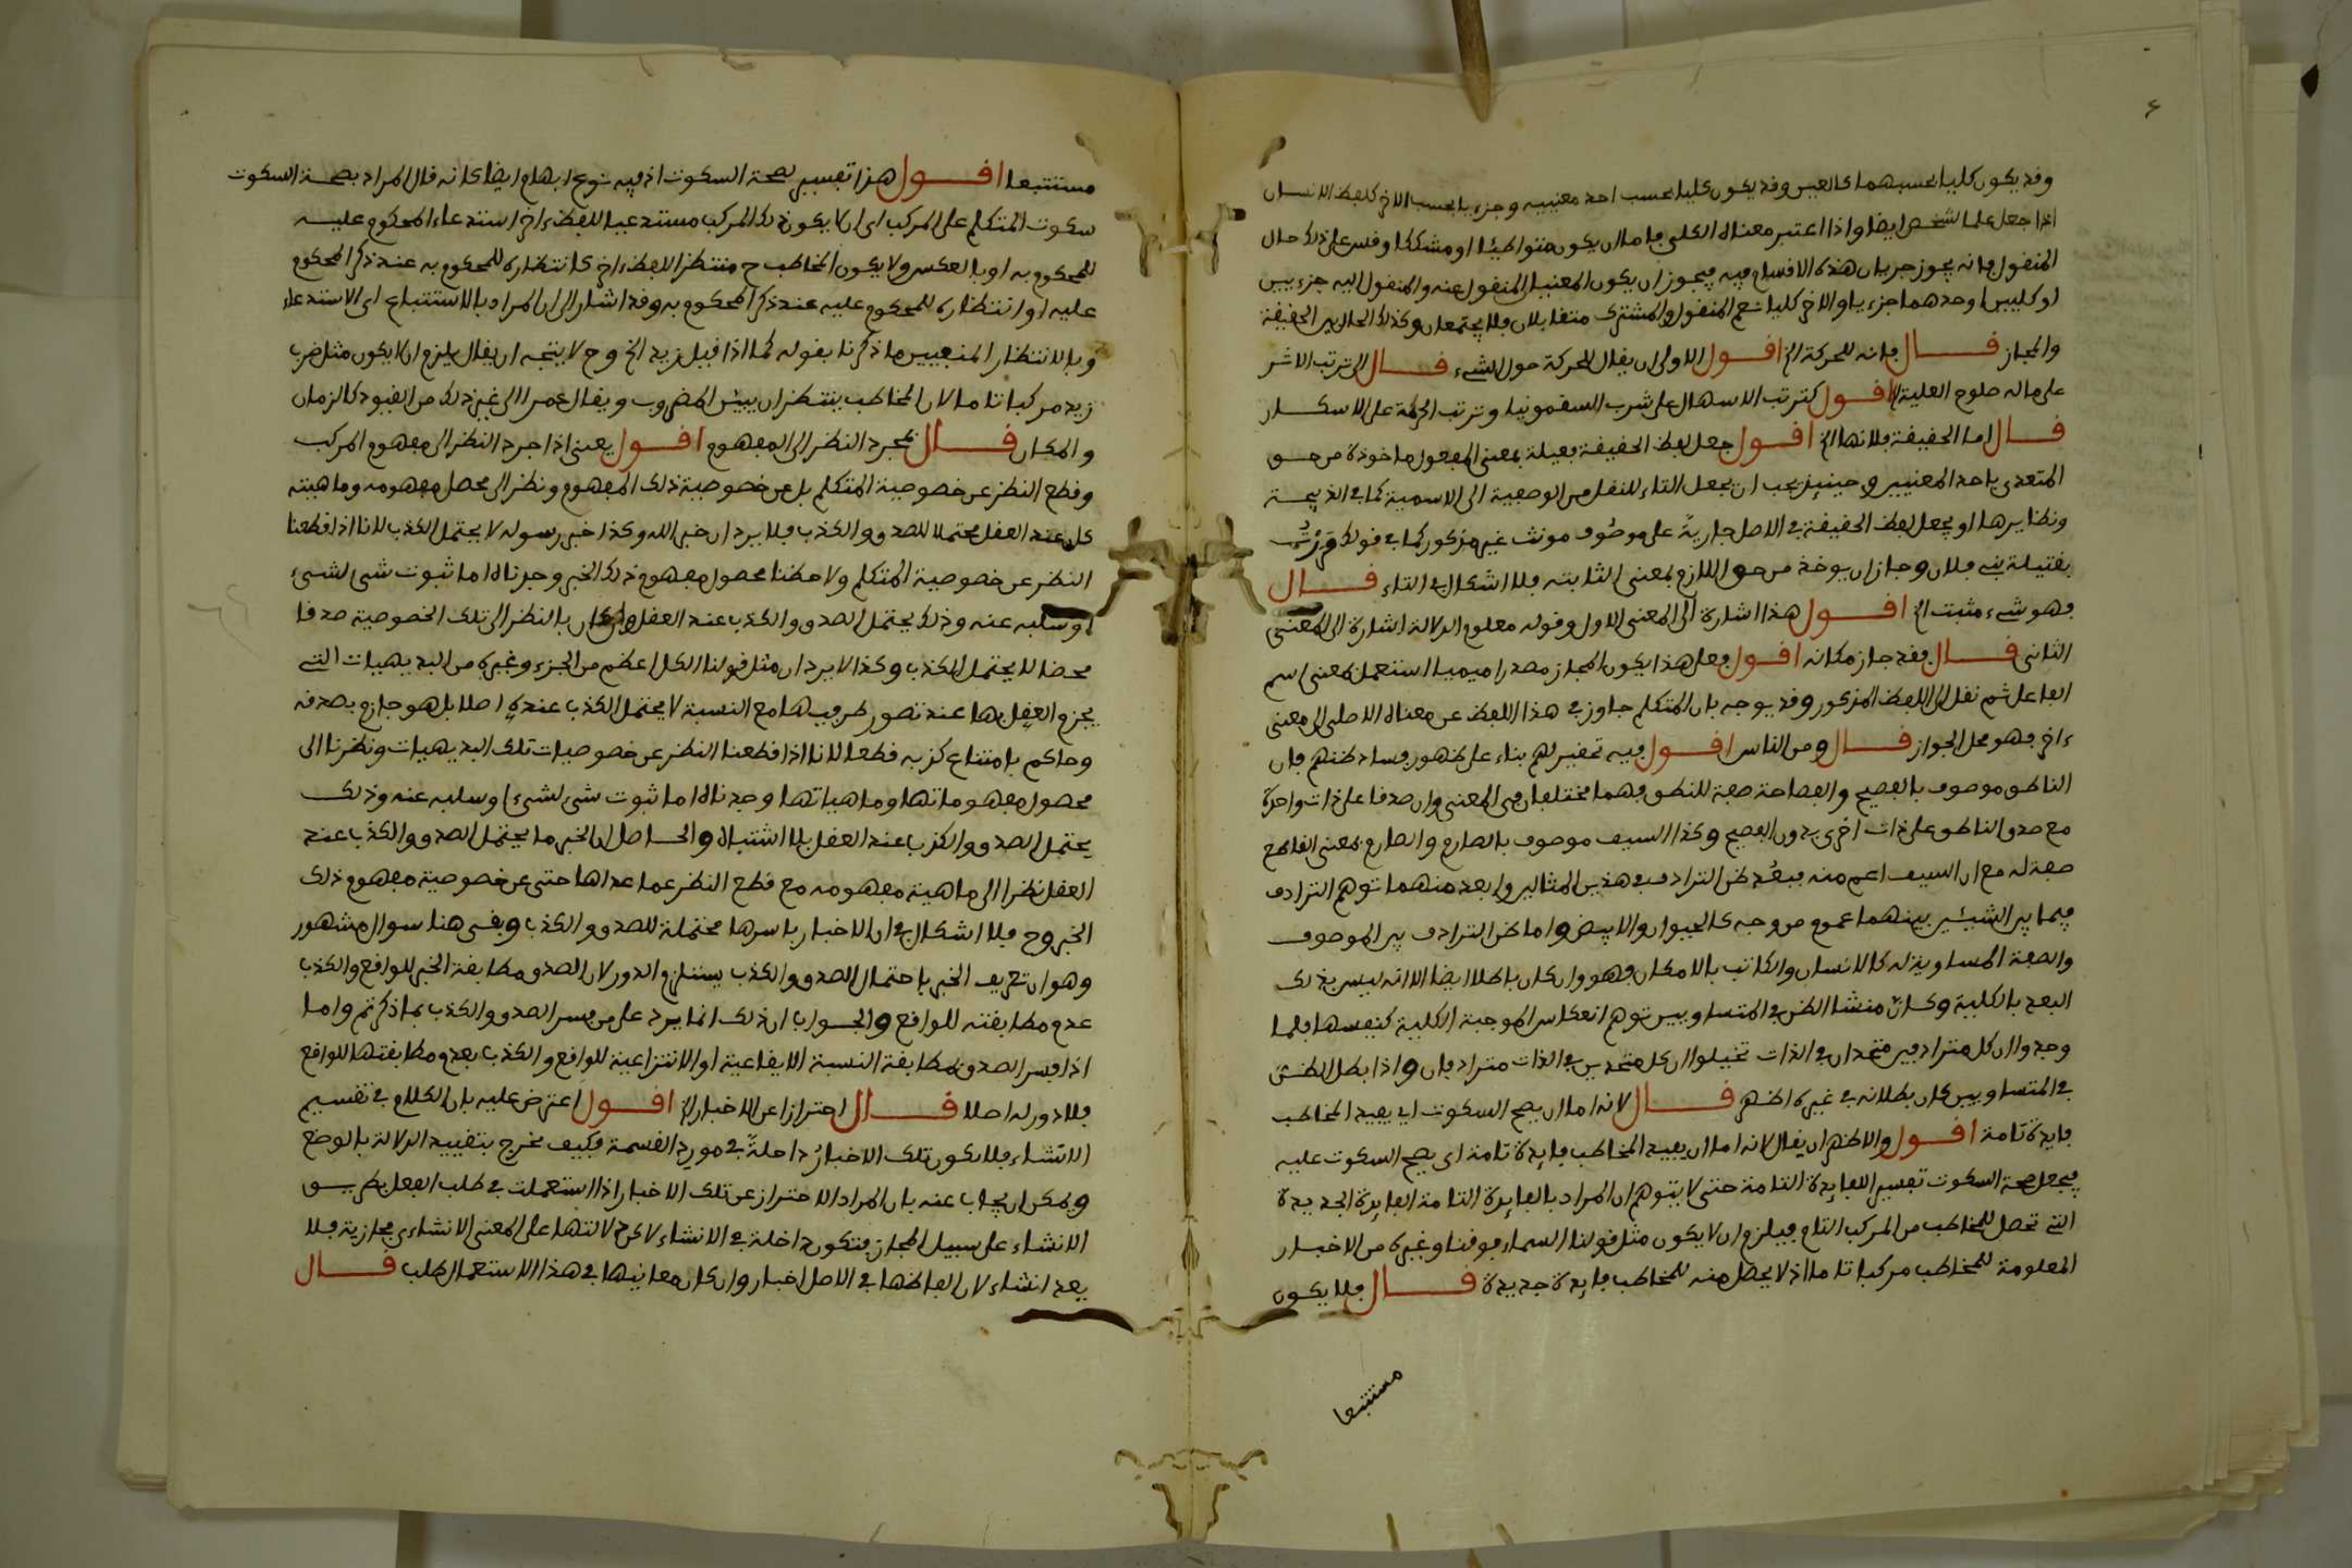 وقد يكون كليا بحسبهما كالعين وقد يكون كليا بحسب احد معنييه وجزءيا بحسب الاخر كلفظ الانسان
اذا جعل علما لشخص ايضا واذا اعتبر معناه الكلي فاما ان يكون متواطئا او مشككا وقس على ذلك حال
المنقول فانه يجوز جريان هذه الاقسام فيه فيجوز ان يكون المعنيان المنقول عنه والمنقول اليه جزءيين
او كليين او احدهما جزءيا والاخر كليا نعم المنقول والمشترك متقابلان فلا يجتمعان وكذلك الحال بين الحقيقة
والمجاز قال فانه للحركة الخ اقول الاولى ان يقال للحركة حول الشيء قال الى ترتب الاثر
على ماله صلوح العلية الخ اقول كترتب الاسهال على شرب السقمونيا وترتب الحرمة على الاسكار
قال اما الحقيقة فلانها الخ اقول جعل لفظ الحقيقة فعيلة بمعنى المفعول ماخوذة من حق
المتعدي باحد المعنيين وحينئذ يجب ان يجعل التاء للنقل من الوصفية الى الاسمية كما في الذبيحة
ونظايرها او يجعل لفظ الحقيقة في الاصل جارية على موصوف مونث غير مذكور كما في قولك مررت
بقتيلة بني فلان وجاز ان يوخذ من حق اللازم بمعنى الثابته فلا اشكال في التاء قال
فهو شيء مثبت الخ اقول هذا اشارة الى المعنى الاول وقوله معلوم الدلالة اشارة الى المعنى
الثاني قال فقد جاز مكانه اقول فعلى هذا يكون المجاز مصدرا ميميا استعمل بمعنى اسم
الفاعل ثم نقل الى اللفظ المذكور وقد يوجه بان المتكلم جاوز في هذا اللفظ عن معناه الاصلي الى معنى
ءاخر فهو محل الجواز قال ومن الناس اقول فيه تحقير لهم بناء على ظهور فساد ظنهم فان
الناطق موصوف بالفصيح والفصاحة صفة للنطق فهما مختلفان في المعنى وان صدقا على ذات واحدة
مع صدق الناطق على ذات اخرى بدون الفصيح وكذا السيف موصوف بالصارم والصارم بمعنى القاطع
صفة له مع ان السيف اعم منه فبعُد ظن الترادف في هذين المثالين وابعد منهما توهم الترادف
فيما بين الشيئين بينهما عموم من وجه كالحيوان والابيض واما ظن الترادف بين الموصوف
والصفة المساوية له كالانسان والكاتب بالامكان فهو وان كان باطلا ايضا الا انه ليس بذلك
البعد بالكلية وكانّ منشا الظن في المتساويين توهم انعكاس الموجبة الكلية كنفسها فلما
وجدوا ان كل مترادفين متحدان في الذات تخيلوا ان كل متحدين في الذات مترادفان واذا بطل الظن
في المتساويين كان بطلانه في غيره اظهر قال لانه اما ان يصح السكوت اي يفيد المخاطب
فايدة تامة اقول والاظهر ان يقال لانه اما ان يفيد المخاطب فايدة تامة اي يصح السكوت عليه
فيجعل صحة السكوت تفسيرا للفايدة التامة حتى لا يتوهم ان المراد بالفايدة التامة الفايدة الجديدة
التي تحصل للمخاطب من المركب التام فيلزم ان لا يكون مثل قولنا السماء فوقنا وغيره من الاخبار
المعلومة للمخاطب مركبا تاما اذ لا يحصل منه للمخاطب فايدة جديدة قال فلا يكون
مستتبعا
مستتبعا اقول هذا تفسير لصحة السكوت اذ فيه نوع ابهام ايضا كانه قال المراد بصحة السكوت
سكوت المتكلم على المركب اي ان لا يكون ذلك المركب مستدعيا للفظ ءاخر استدعاء المحكوم عليه
للمحكوم به او بالعكس ولا يكون المخاطب ح منتظرا للفظ ءاخر كانتظاره للمحكوم به عند ذكر المحكوم
عليه او انتظاره للمحكوم عليه عند ذكر المحكوم به وقد اشار الى ان المراد بالاستتباع اي الاستدعاء
وبالانتظار المنفيين ما ذكرنا بقوله كما اذا قيل زيد الخ وح لا يتجه ان يقال يلزم ان لا يكون مثل ضرب
زيد مركبا تاما لان المخاطب ينتظر ان يبين المضروب ويقال عمرا الى غير ذلك من القيود كالزمان
والمكان قال بمجرد النظر الى المفهوم اقول يعني اذا جرد النظر الى مفهوم المركب
وقطع النظر عن خصوصية المتكلم بل عن خصوصية ذلك المفهوم ونظر الى محصل مفهومه وماهيته
كان عند العقل محتملا للصدق والكذب فلا يرد ان خبر الله وكذا خبر رسوله لا يحتمل الكذب لانا اذا قطعنا
النظر عن خصوصية المتكلم ولاحظنا محصول مفهوم ذلك الخبر وجدناه اما ثبوت شيء لشيء
او سلبه عنه وذلك يحتمل الصدق والكذب عند العقل وان كان بالنظر الى تلك الخصوصية صدقا
محضا لا يحتمل الكذب وكذا لا يرد ان مثل قولنا الكل اعظم من الجزء وغيره من البديهيات التي
يجزم العقل بها عند تصور طرفيها مع النسبة لا يحتمل الكذب عنده اصلا بل هو جازم بصدقه
وحاكم بامتناع كذبه قطعا لانا اذا قطعنا النظر عن خصوصيات تلك البديهيات ونظرنا الى
محصول مفهوماتها وماهياتها وجدناه اما ثبوت شيء لشيء او سلبه عنه وذلك
يحتمل الصدق والكذب عند العقل بلا اشتباه والحاصل ان الخبر ما يحتمل الصدق والكذب عند
العقل نظرا الى ماهية مفهومه مع قطع النظر عما عداها حتى عن خصوصية مفهوم ذلك
الخبر وح فلا اشكال في ان الاخبار باسرها محتملة للصدق والكذب وبقي هنا سوال مشهور
وهو ان تعريف الخبر باحتمال الصدق والكذب يستلزم الدور لان الصدق مطابقة الخبر للواقع والكذب
عدم مطابقته للواقع والجواب ان ذلك انما يرد على من فسر الصدق والكذب بما ذكرتم واما
اذا فسر الصدق بمطابقة النسبة الايقاعية او الانتزاعية للواقع والكذب بعدم مطابقتها للواقع
فلا دور له اصلا قال احترازا عن الاخبار الخ اقول اعترض عليه بان الكلام في تقسيم
الانشاء فلا يكون تلك الاخبارُ داخلةً في مورد القسمة فكيف يخرج بتقييد الدلالة بالوضع
ويمكن ان يجاب عنه بان المراد الاحتراز عن تلك الاخبار اذا استعملت في طلب الفعل بطريق
الانشاء على سبيل المجاز فتكون داخلة في الانشاء لاكن دلالتها على المعنى الانشاءي مجازية فلا
يعد انشاء لان الفاظها في الاصل اخبار وان كان معانيها في هذا الاستعمال طلب قال